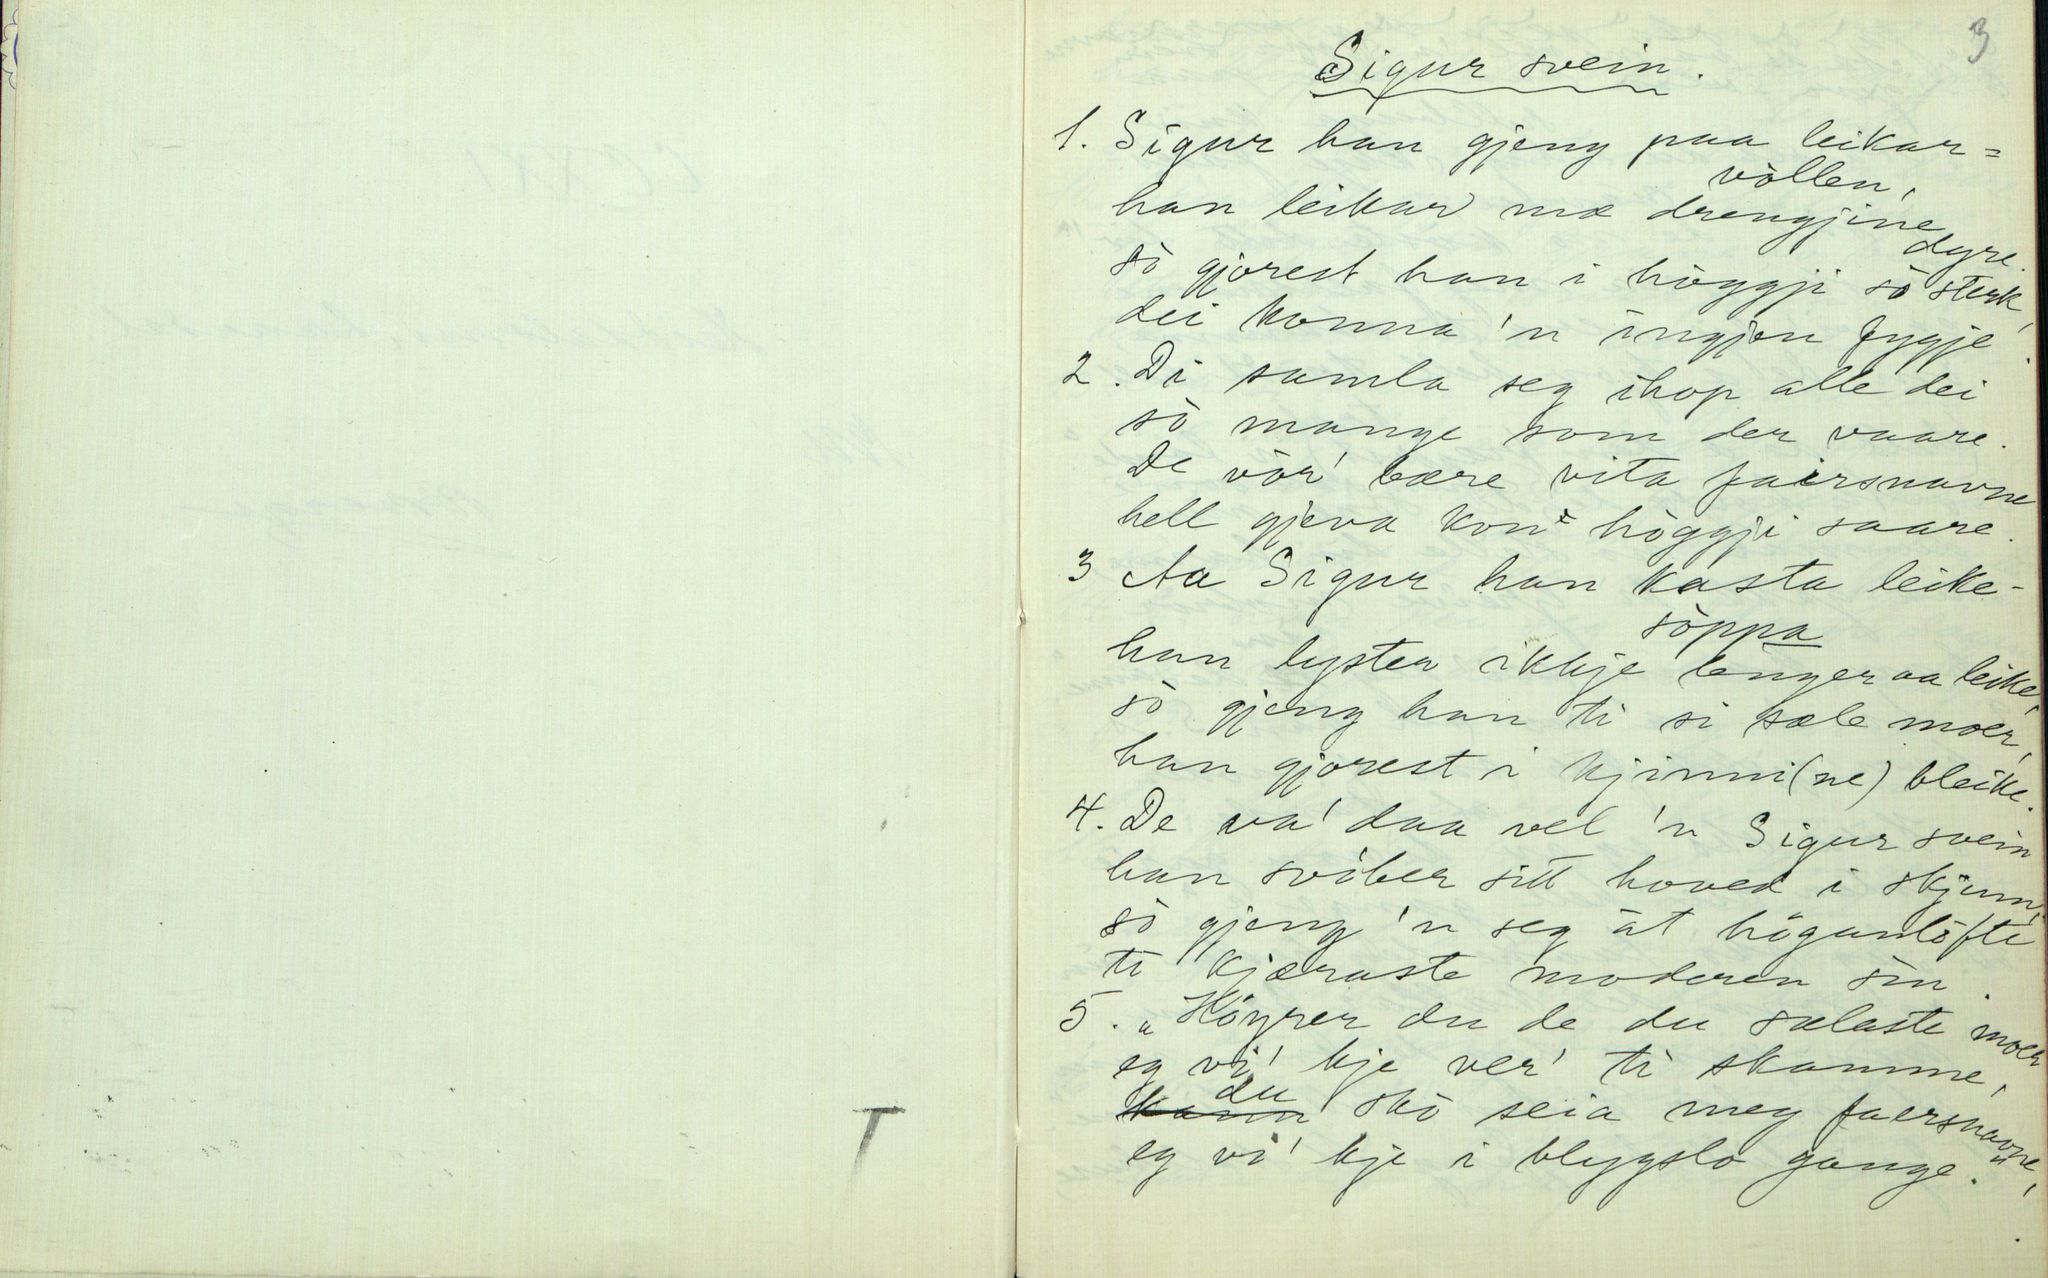 3
Sigur svein.
1. Sigur han gjeng paa leikar=
vòllen,
han leikar mæ drengjine
dyre.
sò gjorest han i hòggji sò sterk,
dei konna 'n ingjen fygje.
2. Di samla seg ihop alle dei
sò mange som der vaare.
De vòr' bære vita faersnavne
hell gjeva kon höggji saare.
3 Aa Sigur han kasta leike-
sòppa
han lyster ikkje lenger aa leike,
sò gjeng han ti si sæle moer,
han gjorest i kjinni(ne) bleike.
4. De va' daa vel 'n Sigur svein
han svòber sitt hoved i skjinn,
sò gjeng 'n seg åt höganlöfti
ti kjæraste moderen sin.
5. „Höyrer du de du sælaste moer
eg vi' kje ver' ti skamme,
du
kann skò seia meg faersnavne,
eg vi' kje i blygslo gange."
T